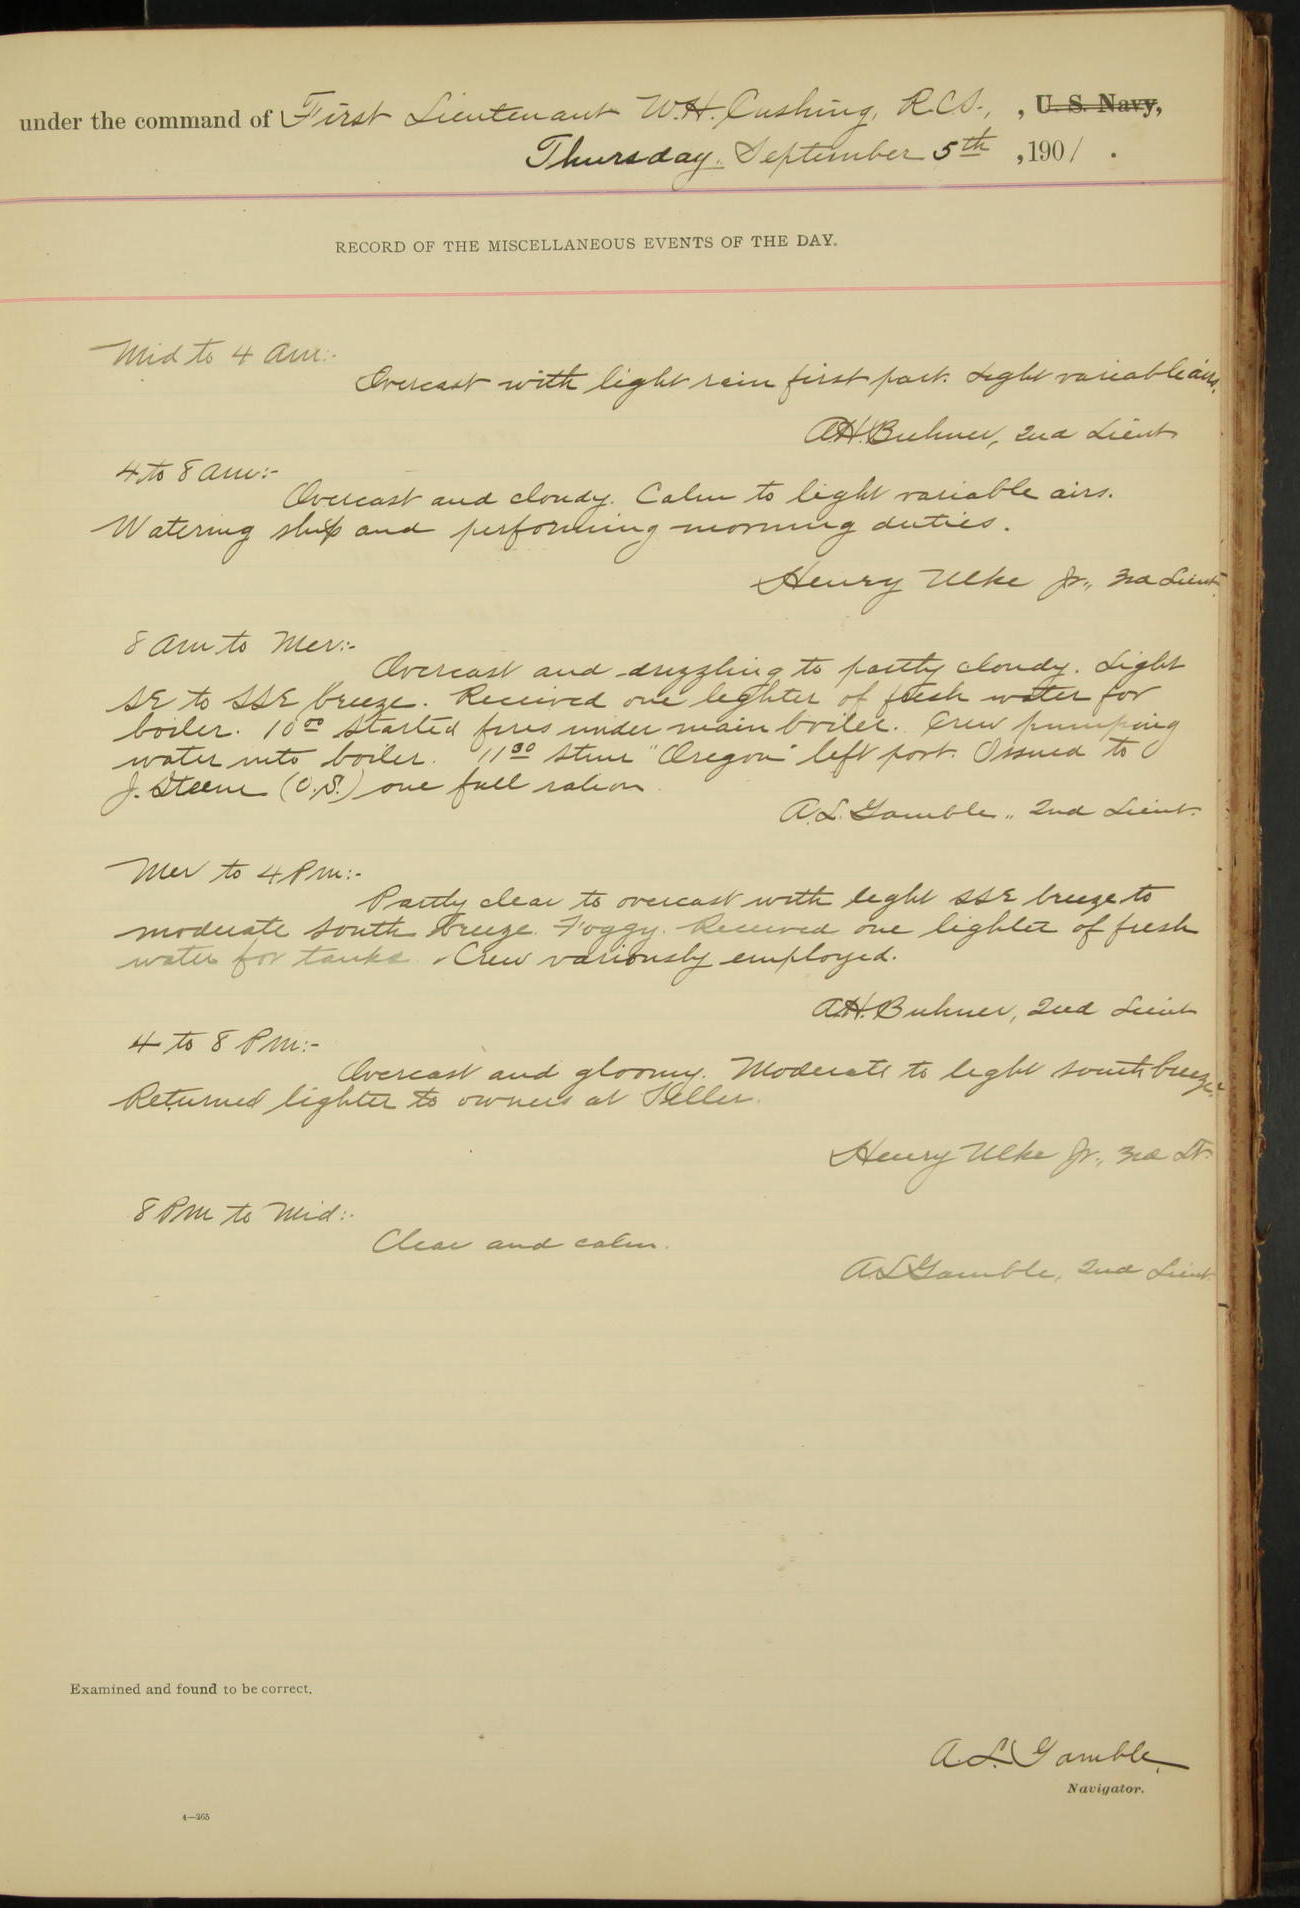 under the command of First Lieutenant W.H. Cushing, R.C.S., , U. S. Navy,
Thursday, September 5th , 1901 .
RECORD OF THE MISCELLANEOUS EVENTS OF THE DAY.
Mid to 4 am:-
Overcast with light rain first part. Light variable airs.
A.H. Buhner, 2nd Lieut
4 to 8 am:-
Overcast and cloudy. Calm to light variable airs.
Watering ship and performing morning duties.
Henry Ulke Jr., 3rd Lieut.
8 am to Mer:-
Overcast and drizzling to partly cloudy. Light
SE to SSE breeze. Received one lighter of fresh water for
boiler. 10 00 started fires under main boiler. Crew pumping
water into boiler. 11 30 stmr "Oregon" left port. Issued to
J. Steene (O.S.) one full ration
A.L. Gamble, 2nd Lieut.
Mer to 4 Pm:-
Partly clear to overcast with light SSE breeze to
moderate south breeze. Foggy. Received one lighter of fresh
water for tanks. Crew variously employed.
A.H. Buhner, 2nd Lieut
4 to 8 Pm:-
Overcast and gloomy. Moderate to light south breeze.
Returned lighter to owners at Teller.
Henry Ulke Jr., 3rd Lt.
8 Pm to Mid:-
Clear and calm.
A.L. Gamble, 2nd Lieut.
Examined and found to be correct.
A.L. Gamble,
Navigator.
4—265